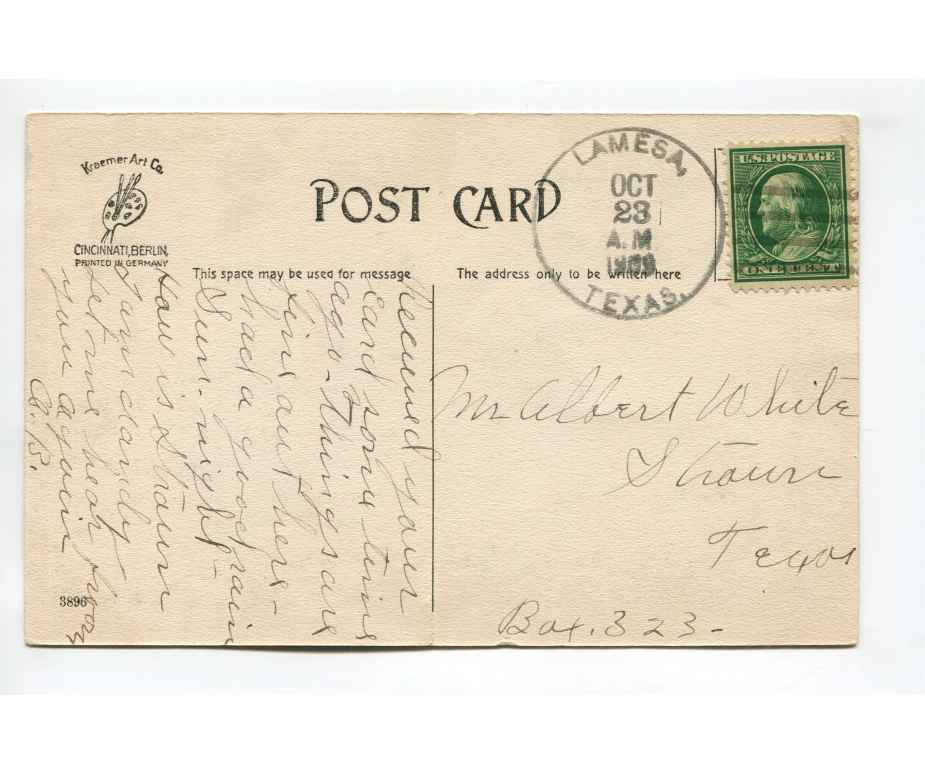 Kraemer Art Co.
CINCINNATI, BERLIN,
PRINTED IN GERMANY
POST CARD
This space may be used for message
The address only to be written here
LAMESA,
OCT
23
A.M
TEXAS.
U.S. POSTAGE
ONE CENT
Received your
card some time
ago - Things are
fine out here -
had a good rain
Sun. night -
How is Strawn
I am dandy
let me hear from
you again
3896
Mr Albert White
Strawn
Texas
Box. 323 -